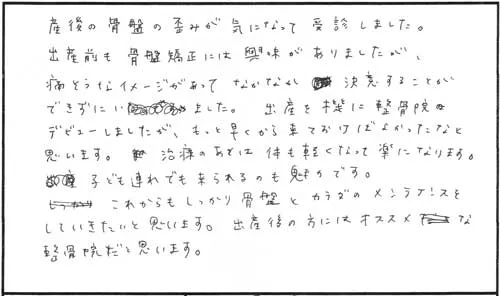 産後の骨盤の歪みが気になって受診しました。
出産前も骨盤矯正には興味がありましたが、
痛そうなイメージがあって なかなかれ 決意することが
できずにいました。 出産を機に整骨院の
デビューしましたが、もっと早くから来ておけばよかったなと
思います。 治療のあとは 体も軽くなって楽になります。
子ども連れでも来られるのも魅力です。
これからもしっかり骨盤とカラダのメンテナンスを
していきたいと思います。 出産後の方にはオススメな
整骨院だと思います。